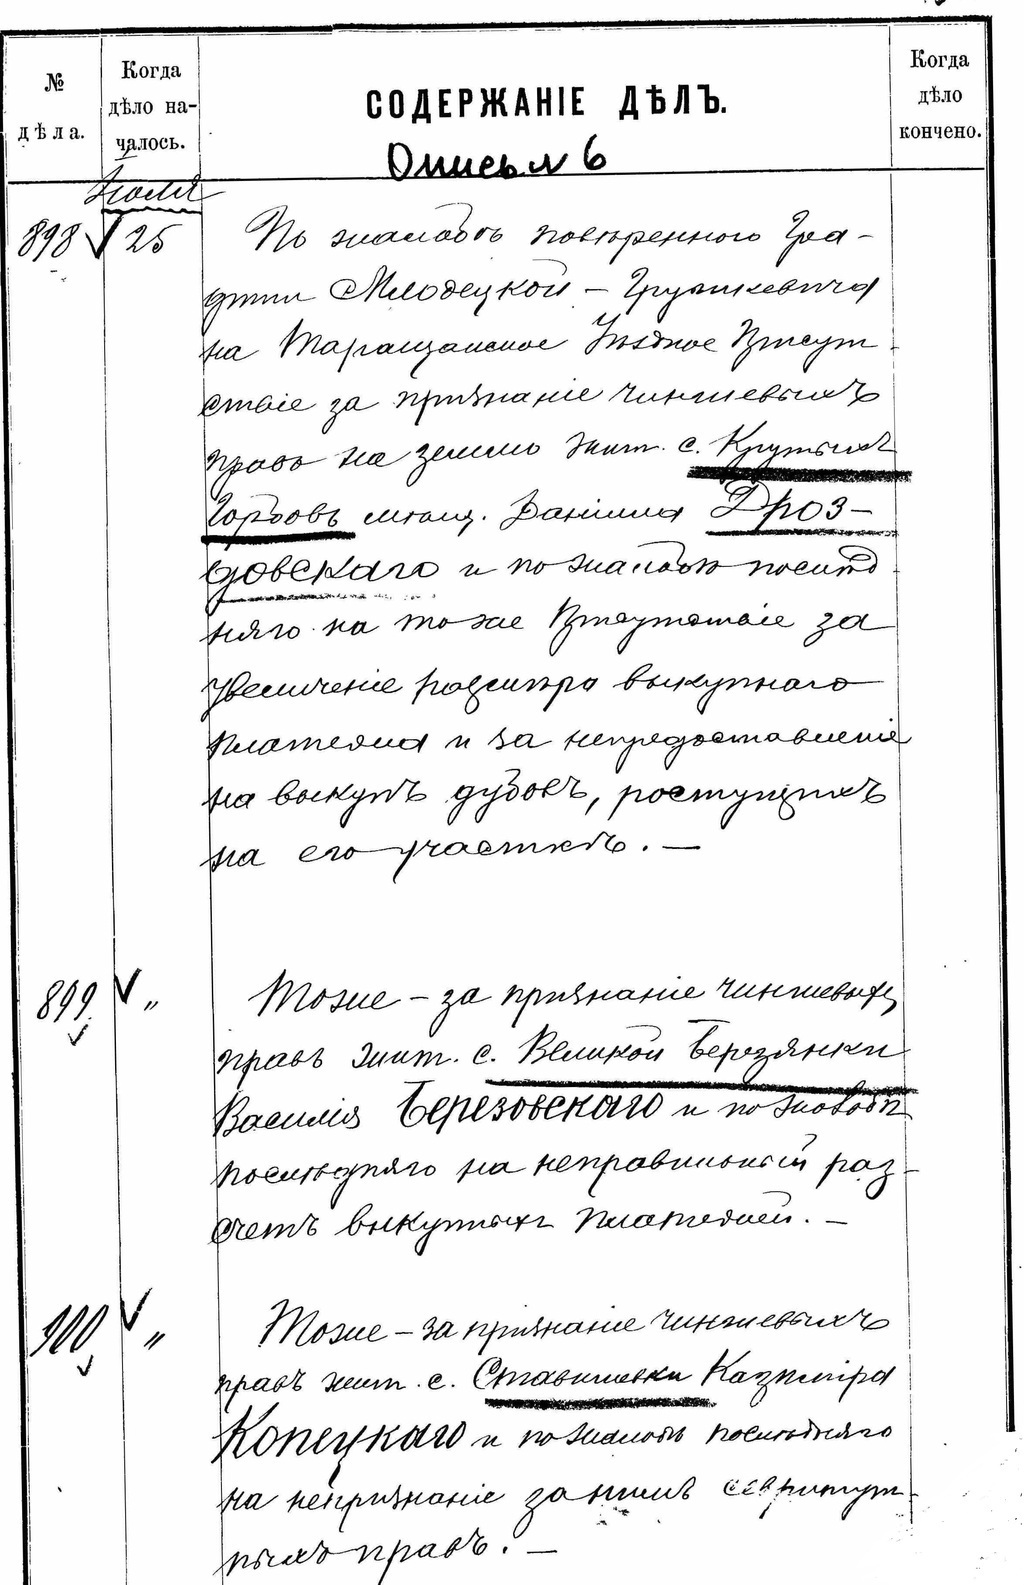 № дѣла.
Когда дѣло на-
чалось.
СОДЕРЖАНІЕ ДѢЛЪ.
Когда дѣло кончено.
Опись № 6
Іюля
898 25 По жалобѣ повѣреннаго Гра-
фини Млодецкой – Грушкевича
на Таращанское Уѣздное Присут-
ствіе за признаніе чиншевыхъ
правъ на землю жит. с. Крутыхъ
Горбовъ мѣщ. Даніила Дроз-
довскаго и по жалобѣ послѣд
няго на то же Присутствіе за
увеличеніе размѣра выкупнаго
платежа и за непредоставленіе
на выкупъ дубовъ, ростущихъ
на его участкѣ. —
899 „ Тоже – за признаніе чиншевыхъ
правъ жит. с. Великой Березянки
Василія Березовскаго и по жалобѣ
послѣдняго на неправильный раз-
счетъ выкупныхъ платежей. —
900 „ Тоже – за признаніе чиншевыхъ
правъ жит. с. Ставишевки Казиміра
Копецкаго и по жалобѣ послѣдняго
на непризнаніе за нимъ сервитут-
ныхъ правъ. —